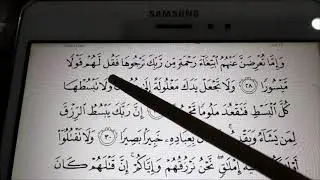 وَإِمَّا تُعْرِضَنَّ عَنْهُمُ ابْتِغَاءَ رَحْمَةٍ مِّن رَّبِّكَ تَرْجُوهَا فَقُل لَّهُمْ قَوْلًا
مَّيْسُورًا ٢٨ وَلَا تَجْعَلْ يَدَكَ مَغْلُولَةً إِلَىٰ وَلَا تَبْسُطْهَا
كُلَّ الْبَسْطِ فَتَقْعُدَ مَلُومًا إِنَّ رَبَّكَ يَبْسُطُ الرِّزْقَ
لِمَن يَشَاءُ وَيَقْدِرُ بِعِبَادِهِ خَبِيرًا بَصِيرًا ٣٠ وَلَا تَقْتُلُوا
إِمْلَاقٍ نَّحْنُ نَرْزُقُهُمْ وَإِيَّاكُمْ إِنَّ قَتْلَهُمْ كَانَ